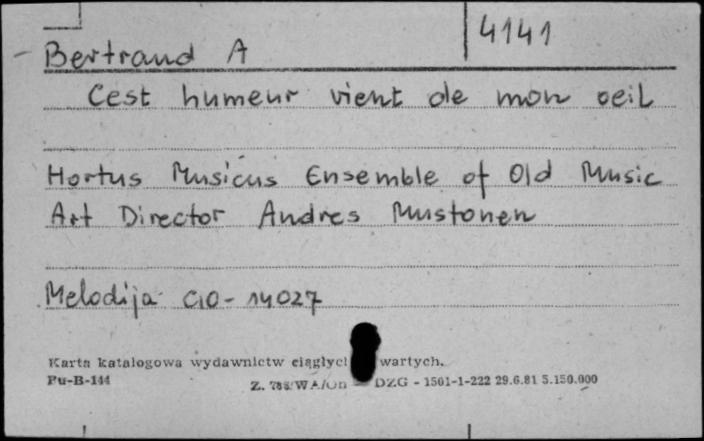 4141
Bertrand A
Cest humeur vient de mon oeil
Hortus Musicus Ensemble of Old Music
Art Director Andres Mustonen
Melodija C10-14027
Karta katalogowa wydawnictw ciągłych wartych.
Pu-B-144
DZG - 1501-1-222 29.6.81 5.150.000